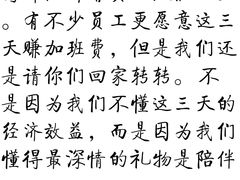 。有不少员工更愿意这三
天赚加班费，但是我们还
是请你们回家转转。不
是因为我们不懂这三天的
经济效益，而是因为我们
懂得最深情的礼物是陪伴